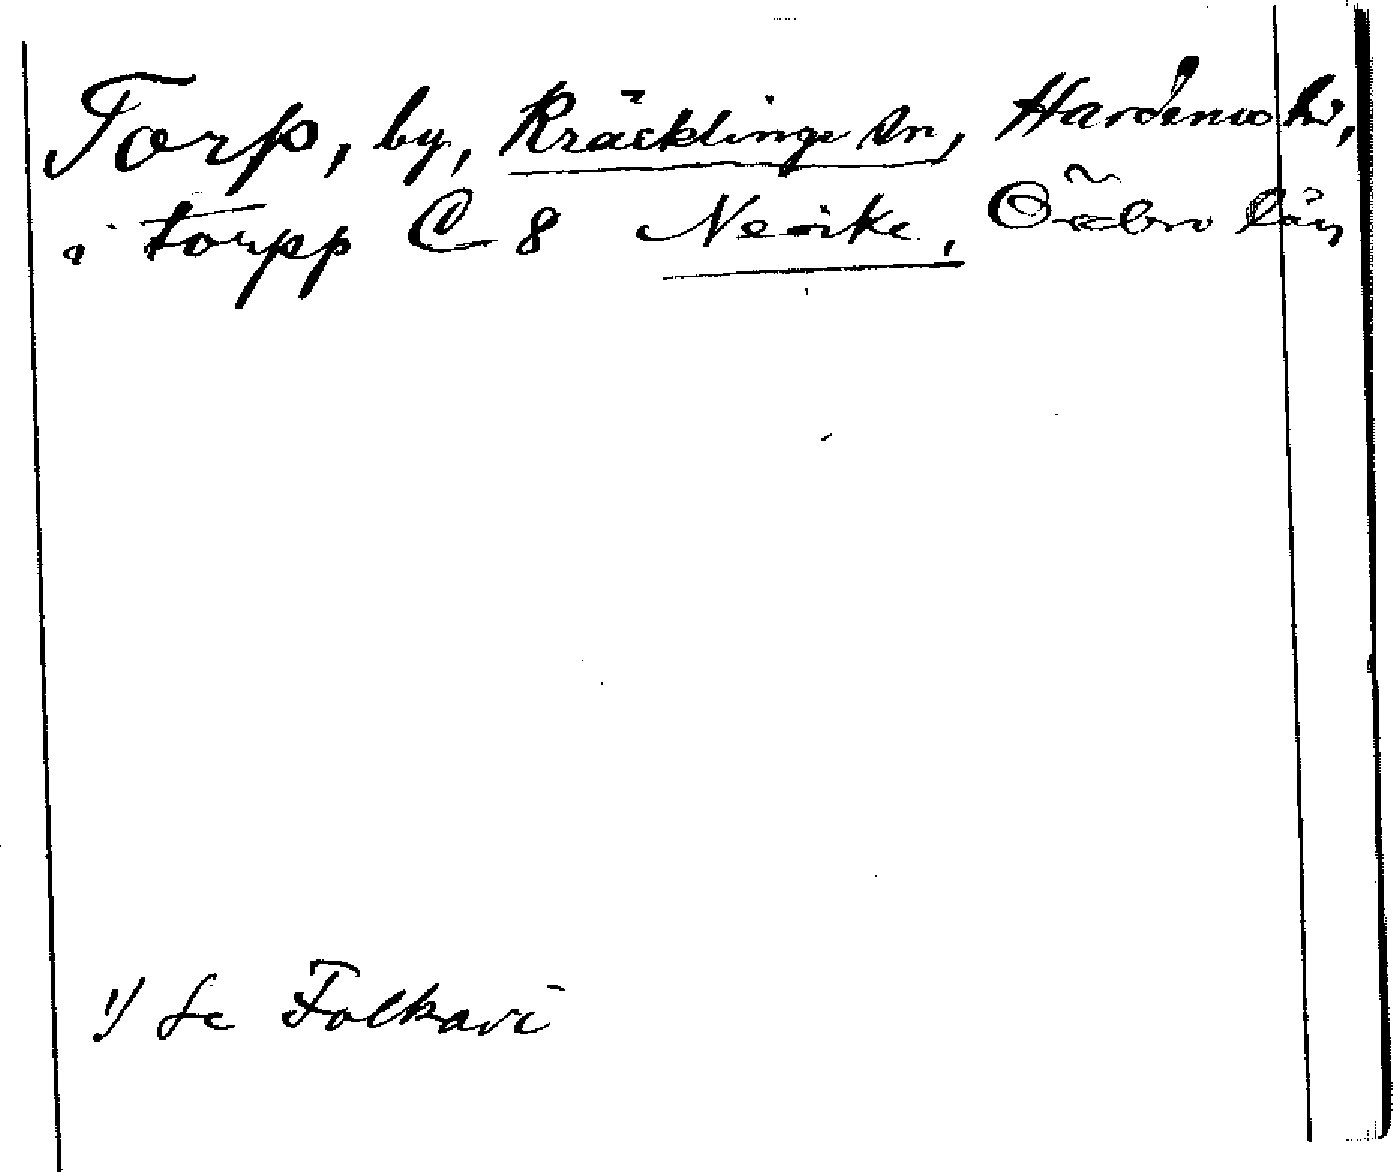 Torp, by, Kräcklinge sn, Hardemo hd,
i torpp C 8 Nerike, Örebro län
1) Se Folkavi